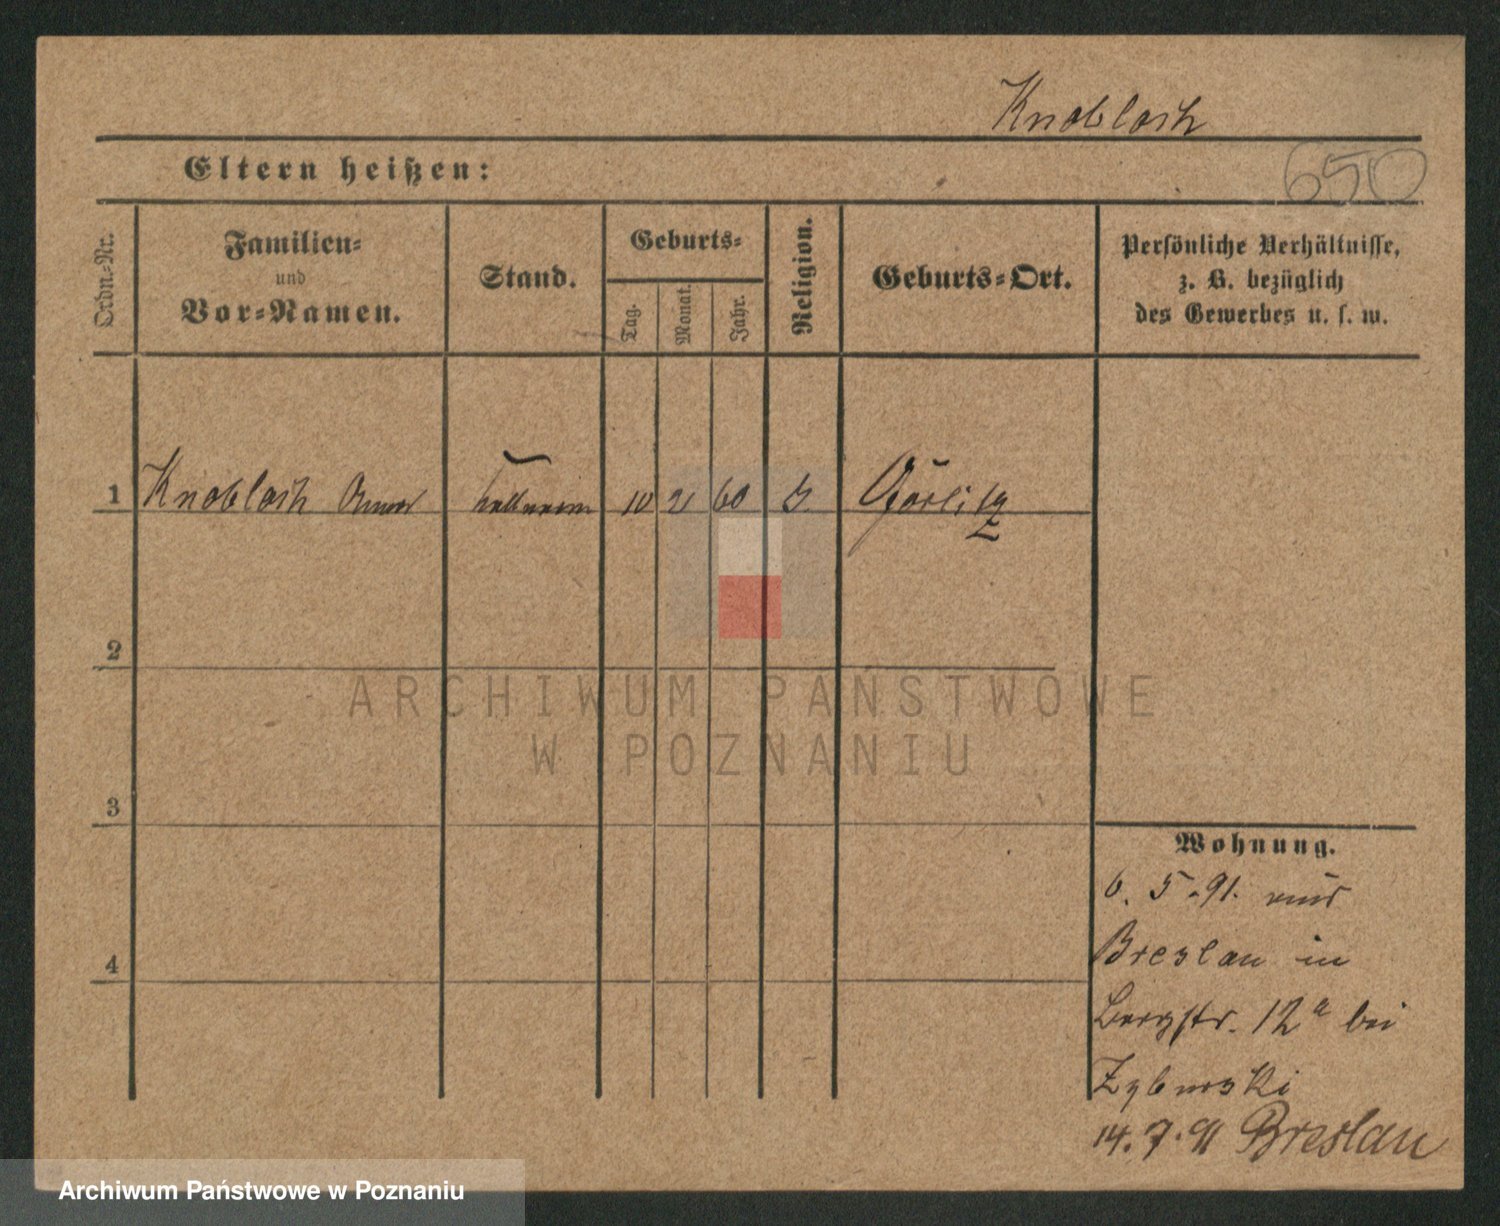 Knobloch
Eltern heißen:
650
Ordn.-Nr.
Familien-
und
Vor-Namen.
Stand.
Geburts-
Tag.
Monat.
Jahr.
Religion.
Geburts-Ort.
Persönliche Verhältnisse,
z. B. bezüglich
des Gewerbes u. s. w.
1 Knobloch Kellnerin 10 2 60 Görlitz
2
ARCHIWUM PAŃSTWOWE
W POZNANIU
3
Wohnung.
6. 5. 91. aus
Breslau in
4
Bergstr. 12a bei
14. 7. 91 Breslau
Archiwum Państwowe w Poznaniu